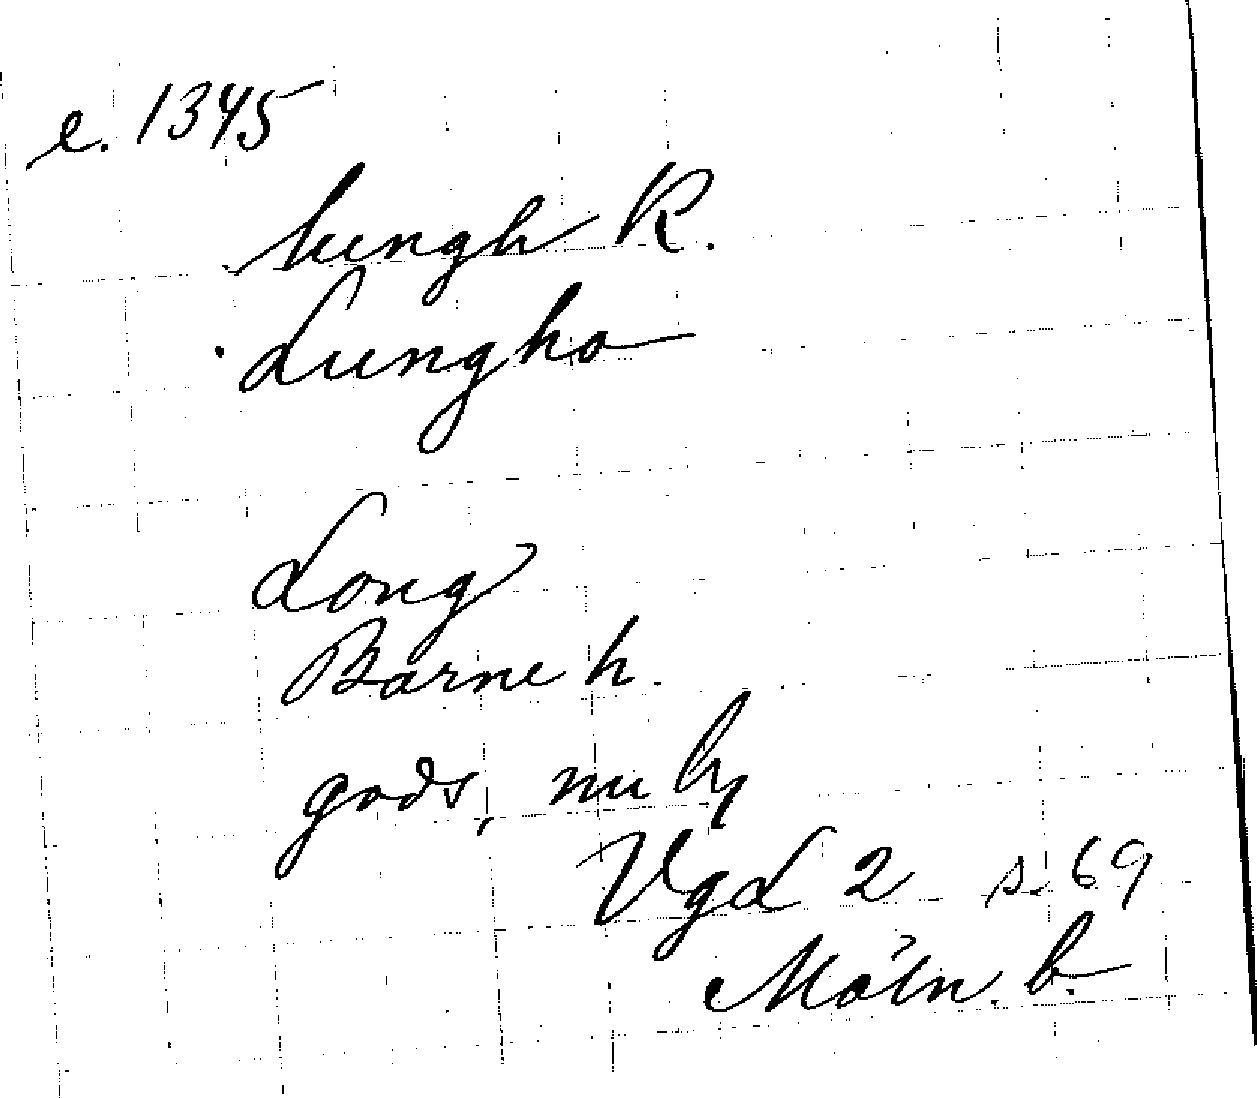 e. 1345
lungh R.
Lungho
Long
Barne h.
gods, nu by
VgL 2 s. 69
Möln. b.